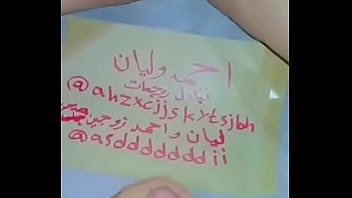 احمد وليان
تبادل زوجات
@ahzxcjjskytsjbh
ليان واحمد زوجين
@asddddddddii